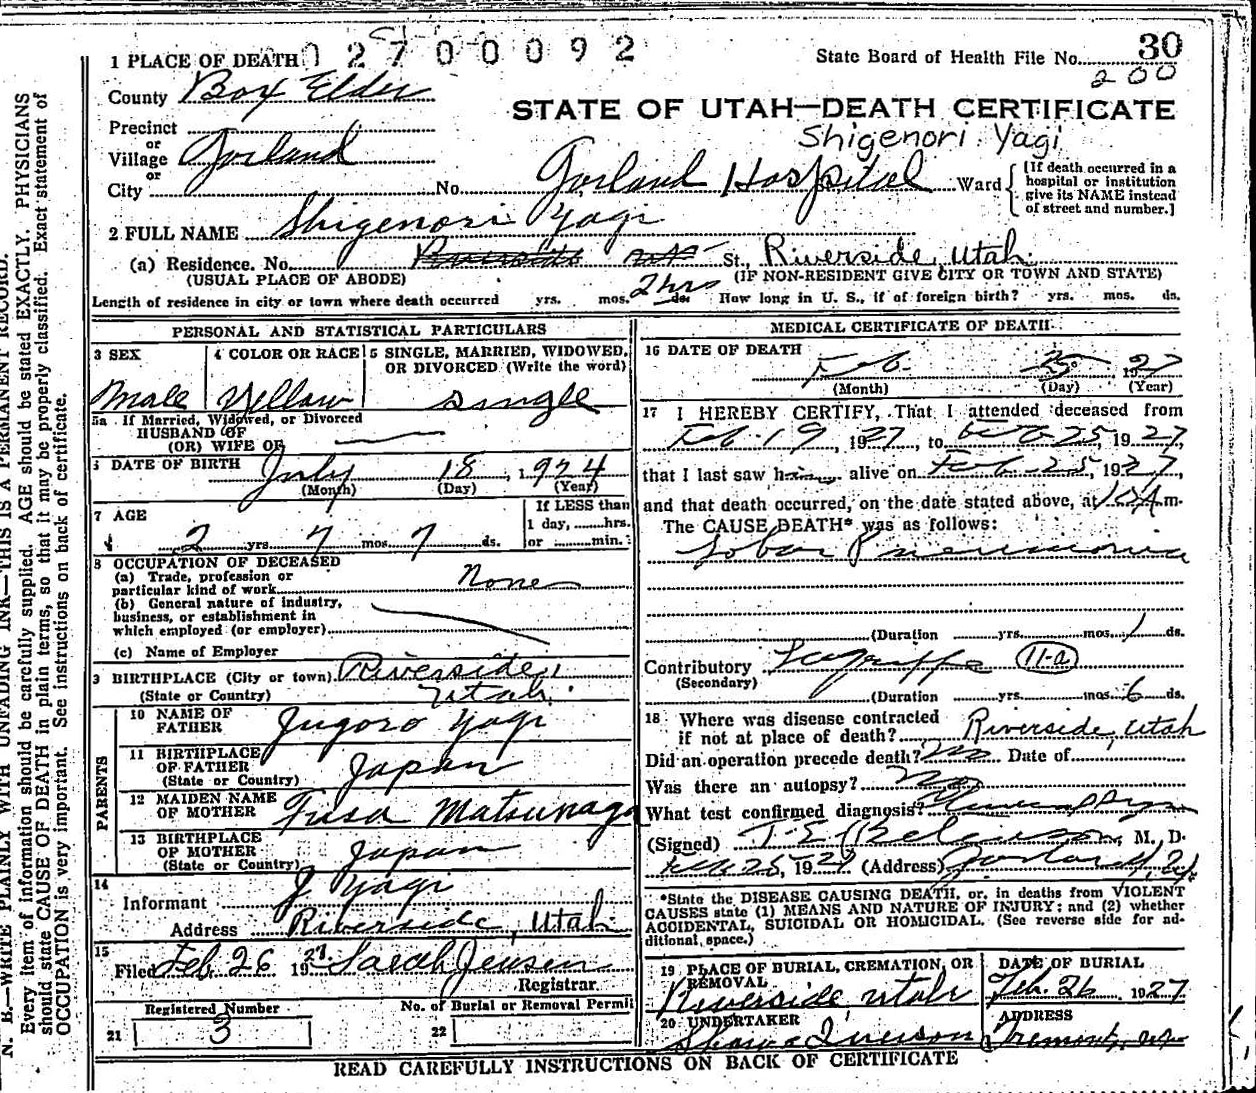 1 PLACE OF DEATH 02700092
State Board of Health File No. 30
200
County Box Elder
STATE OF UTAH—DEATH CERTIFICATE
Precinct
or
Village Garland
or
City
Shigenori Yagi
No. Garland Hospital Ward
[If death occurred in a
hospital or institution
give its NAME instead
of street and number.]
2 FULL NAME Shigenori Yagi
(a) Residence. No. Riverside St., Riverside, Utah.
(USUAL PLACE OF ABODE) (IF NON-RESIDENT GIVE CITY OR TOWN AND STATE)
Length of residence in city or town where death occurred yrs. mos. 2 hrs ds. How long in U. S., if of foreign birth? yrs. mos. ds.
PERSONAL AND STATISTICAL PARTICULARS
3 SEX
Male
4 COLOR OR RACE
Yellow
5 SINGLE, MARRIED, WIDOWED,
OR DIVORCED (Write the word)
single
5a If Married, Widowed, or Divorced
HUSBAND OF
(OR) WIFE OF
6 DATE OF BIRTH July 18, 1924
(Month) (Day) (Year)
7 AGE
2 yrs. 7 mos. 7 ds.
If LESS than
1 day, ......hrs.
or ......min.
8 OCCUPATION OF DECEASED
(a) Trade, profession or
particular kind of work None
(b) General nature of industry,
business, or establishment in
which employed (or employer)
(c) Name of Employer
9 BIRTHPLACE (City or town) Riverside,
(State or Country) Utah.
PARENTS
10 NAME OF
FATHER Jugoro Yagi
11 BIRTHPLACE
OF FATHER
(State or Country) Japan
12 MAIDEN NAME
OF MOTHER Fusa Matsunaga
13 BIRTHPLACE
OF MOTHER
(State or Country) Japan
14
Informant J Yagi
Address Riverside, Utah
15
Filed Feb. 26 1927. Sarah Jensen
Registrar
Registered Number
21 3
No. of Burial or Removal Permit
22
MEDICAL CERTIFICATE OF DEATH
16 DATE OF DEATH
Feb. 25 1927
(Month) (Day) (Year)
17 I HEREBY CERTIFY, That I attended deceased from
Feb. 19, 1927, to Feb 25, 1927,
that I last saw him alive on Feb 25, 1927,
and that death occurred, on the date stated above, at m.
The CAUSE DEATH* was as follows:
Lobar Pneumonia
(Duration yrs. mos. 1 ds.
Contributory La grippe 11-a
(Secondary)
(Duration yrs. mos. 6 ds.
18 Where was disease contracted
if not at place of death? Riverside, Utah
Did an operation precede death? no Date of
Was there an autopsy? no
What test confirmed diagnosis?
(Signed) T. E. M. D.
Feb 25, 1927 (Address) Garland, Ut.
*State the DISEASE CAUSING DEATH, or, in deaths from VIOLENT
CAUSES state (1) MEANS AND NATURE OF INJURY; and (2) whether
ACCIDENTAL, SUICIDAL OR HOMICIDAL. (See reverse side for ad-
ditional space.)
19 PLACE OF BURIAL, CREMATION, OR
REMOVAL
Riverside Utah
DATE OF BURIAL
Feb. 26 1927
20 UNDERTAKER
Shaw & Iverson
ADDRESS
Tremonton
READ CAREFULLY INSTRUCTIONS ON BACK OF CERTIFICATE
N. B.—WRITE PLAINLY WITH UNFADING INK—THIS IS A PERMANENT RECORD.
Every item of information should be carefully supplied. AGE should be stated EXACTLY. PHYSICIANS
should state CAUSE OF DEATH in plain terms, so that it may be properly classified. Exact statement of
OCCUPATION is very important. See instructions on back of certificate.